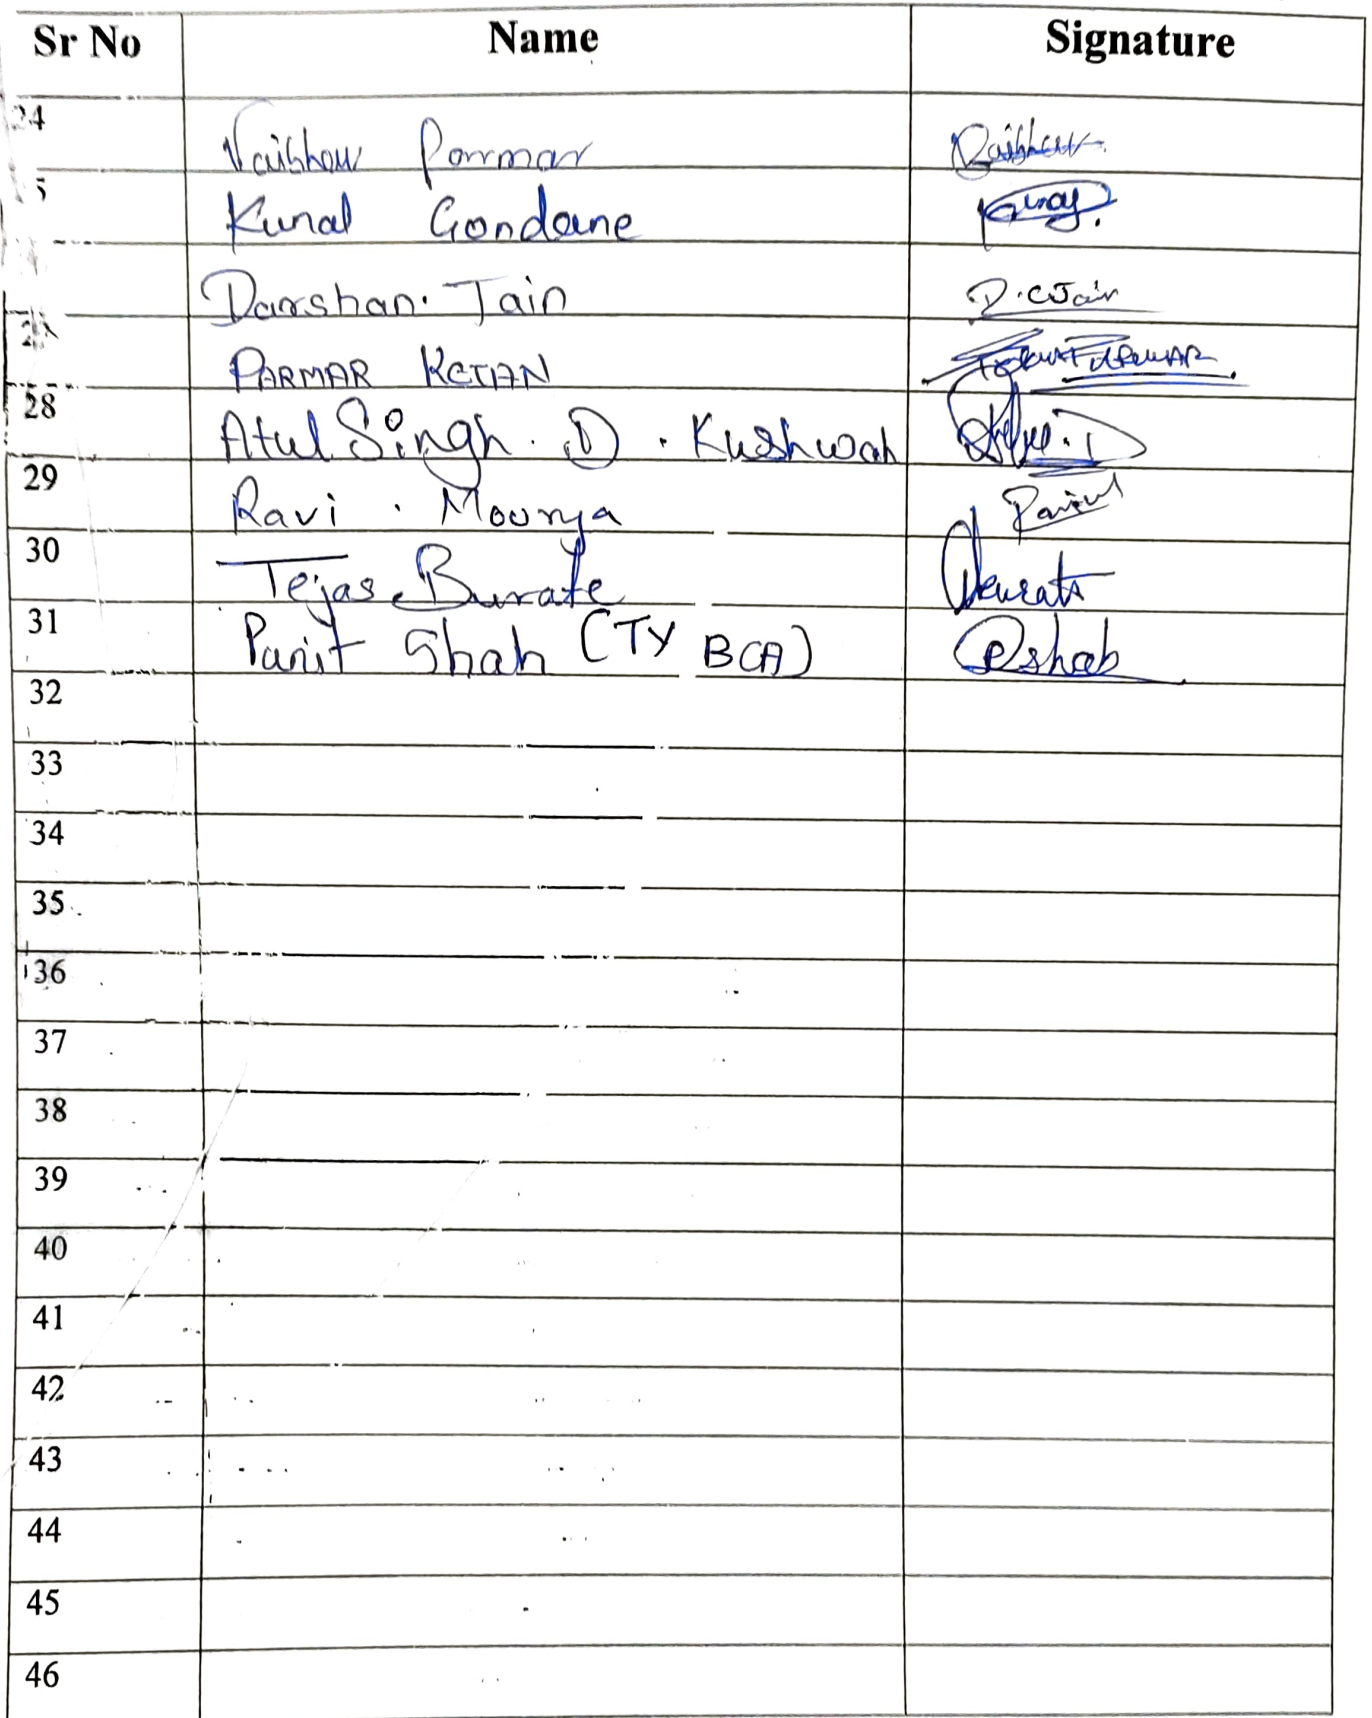 Sr No Name Signature
24 Vaibhav Parmar
5 Kunal Gondane
Darshan. Jain D.C Jain
PARMAR KETAN
28 Atul Singh . D . Kushwah
29 Ravi . Mourya
30 Tejas Burate Burate
31 Parit Shah (TY BCA) Pshah
32
33
34
35
36
37
38
39
40
41
42
43
44
45
46